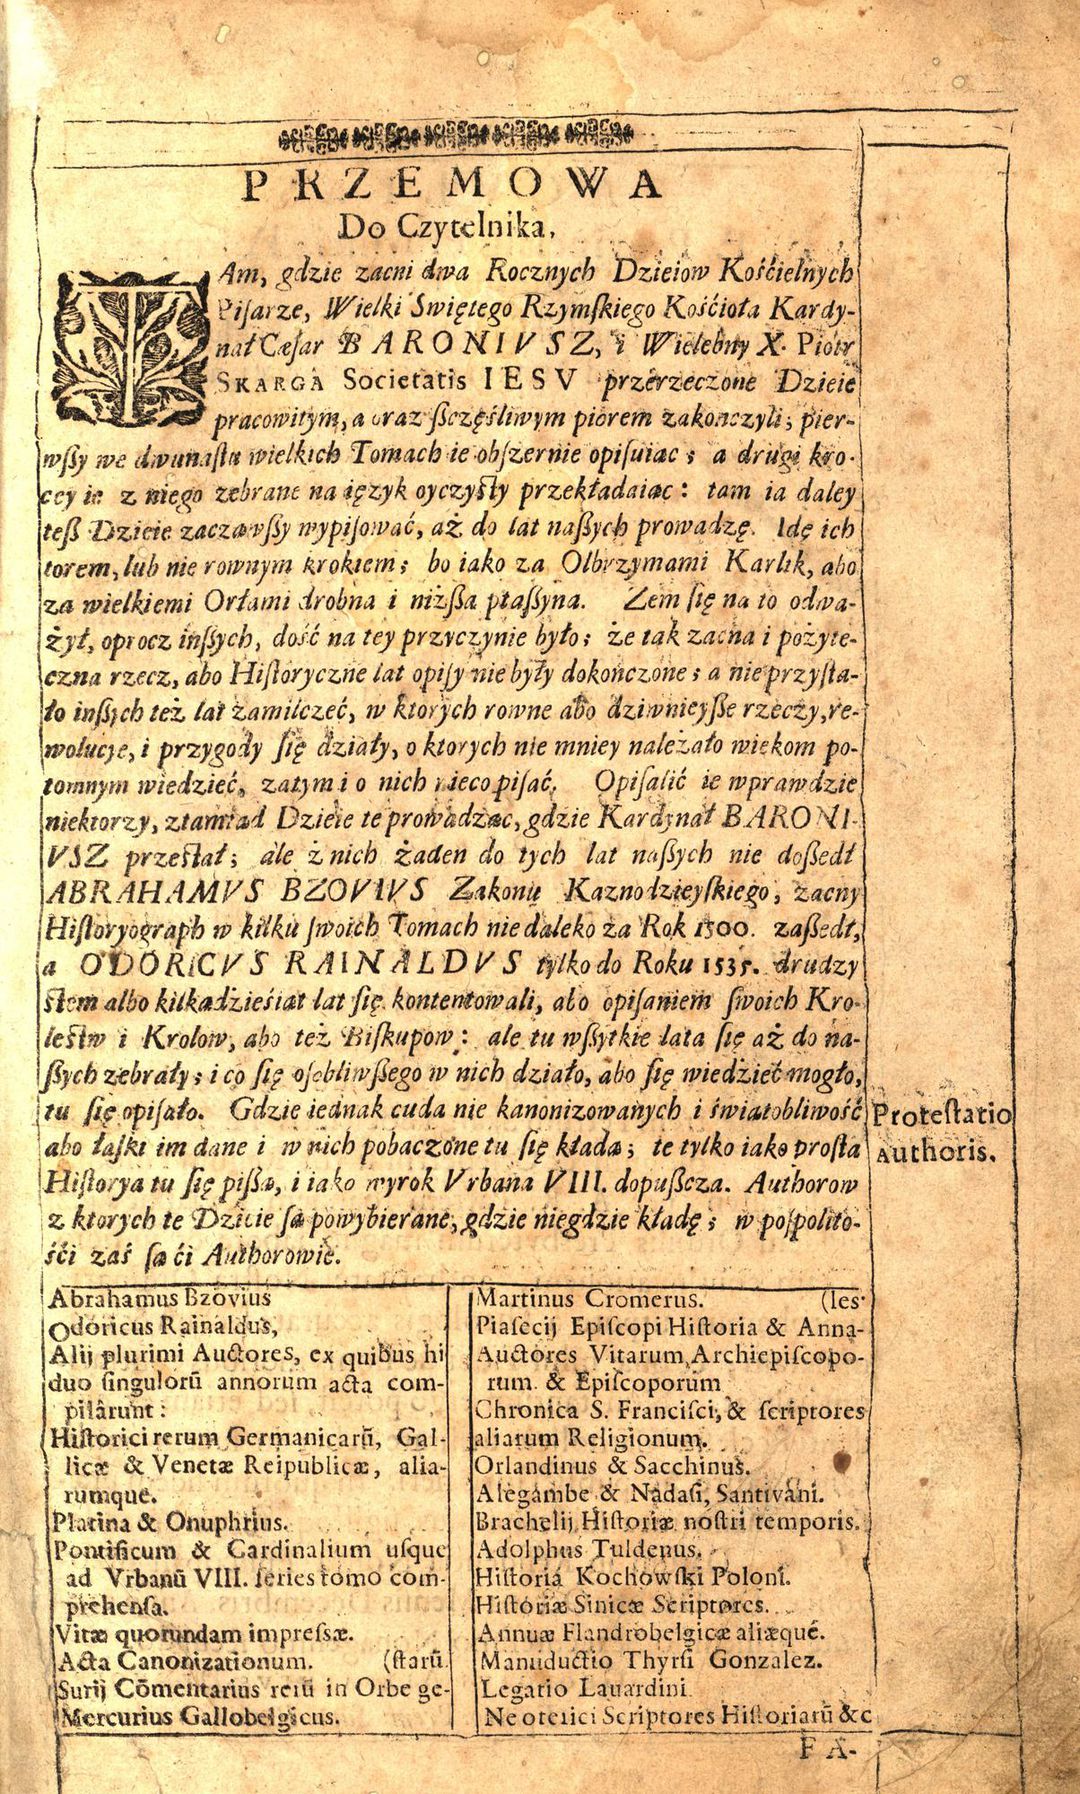 PRZEMOWA
Do Czytelnika,
TAm, gdzie zacni dwa Rocznych Dzieiow Kośćielnych
Piſarze, Wielki Swiętego Rzymſkiego Kośćioła Kardy-
nał Cæſar BARONIVSZ, i Wielebny X. Piotr
SKARGA Societatis IESV przerzeczone Dzieie
pracowitym, a oraz ſzczęśliwym piorem zakończyli; pier-
wſzy we dwunaſtu wielkich Tomach ie obſzernie opiſuiąc; a drugi kro-
cey ie z niego zebrane na ięzyk oyczyſty przekładaiąc: tam ia daley
teſz Dzieie zacząwſzy wypiſować, aż do lat naſzych prowadzę. Idę ich
torem, lub nie rownym krokiem; bo iako za Olbrzymami Karlik, abo
za wielkiemi Orłami drobna i niżſza ptaſzyna. Zem ſię na to odwa-
żył, oprocz inſzych, dość na tey przyczynie było; że tak zacna i pożyte-
czna rzecz, abo Hiſtoryczne lat opiſy nie były dokończone; a nie przyſta-
ło inſzych też lat zamilczeć, w ktorych rowne abo dziwnieyſze rzeczy, re-
wolucje, i przygody ſię działy, o ktorych nie mniey należało wiekom po-
tomnym wiedzieć, zatym i o nich nieco piſać. Opiſalić ie wprawdzie
niektorzy, ztamtąd Dzieie te prowadząc, gdzie Kardynał BARONI-
VSZ przeſtał; ale z nich żaden do tych lat naſzych nie doſzedł
ABRAHAMVS BZOVIVS Zakonu Kaznodzieyſkiego, zacny
Hiſtoryograph w kilku ſwoich Tomach niedaleko za Rok 1500. zaſzedł,
a ODORICVS RAINALDVS tylko do Roku 1535. drudzy
ſtem albo kilkądzieśiąt lat ſię kontentowali, abo opiſaniem ſwoich Kro-
leſtw i Krolow, abo też Biſkupow: ale tu wſzytkie lata ſię aż do na-
ſzych zebrały; i co ſię oſobliwſzego w nich działo, abo ſię wiedzieć mogło,
tu ſię opiſało. Gdzie iednak cuda nie kanonizowanych i świątobliwość
abo łaſki im dane i w nich pobaczone tu ſię kładą; te tylko iako proſta
Hiſtorya tu ſię piſzą, i iako wyrok Vrbana VIII. dopuſzcza. Authorow
z ktorych te Dzieie ſą powybierane, gdzie niegdzie kładę; w poſpolito-
śći zaś ſą ći Authorowie.
Proteſtatio
Authoris.
Abrahamus Bzovius
Odoricus Rainaldus,
Alij plurimi Auctores, ex quibus hi
duo ſingulorũ annorum acta com-
pilârunt:
Hiſtorici rerum Germanicarũ, Gal-
licæ & Venetæ Reipublicæ, alia-
rumque.
Platina & Onuphrius.
Pontificum & Cardinalium uſque
ad Vrbanũ VIII. ſeries tomo com-
prehenſa.
Vitæ quorundam impreſſæ.
Acta Canonizationum. (ſtarũ.
Surij Cõmentarius rerũ in Orbe ge-
Mercurius Gallobelgicus.
Martinus Cromerus. (les.
Piaſecij Epiſcopi Hiſtoria & Anna-
Auctores Vitarum Archiepiſcopo-
rum & Epiſcoporum
Chronica S. Franciſci, & ſcriptores
aliarum Religionum.
Orlandinus & Sacchinus.
Alegambe & Nadaſi, Santivani.
Brachelij Hiſtoriæ noſtri temporis.
Adolphus Tuldenus.
Hiſtoria Kochowſki Poloni.
Hiſtoriæ Sinicæ Scriptores.
Annuæ Flandrobelgicæ aliæque.
Manuductio Thyrſi Gonzalez.
Legatio Lavardini
Neoterici Scriptores Hiſtoriarũ &c
FA-